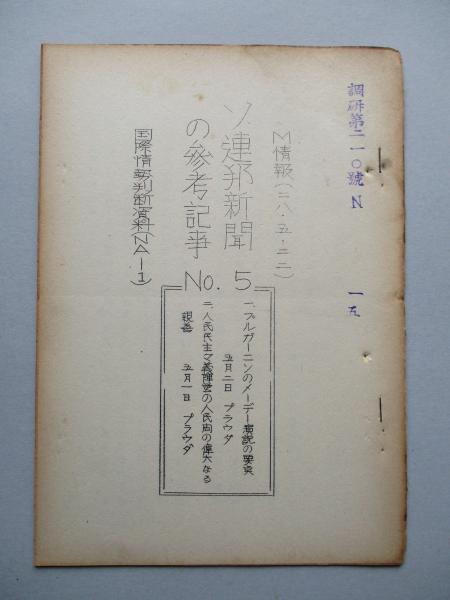 調研第二一〇號 N
一五
M情報(二八・五・二二)
ソ連邦新聞
の參考記事
No. 5
国際情勢判断資料(NA-1)
一、ブルガーニンのメーデー演説の要旨
五月二日 プラウダ
二、人民民主々義陣営の人民間の偉大なる
親善 五月一日 プラウダ